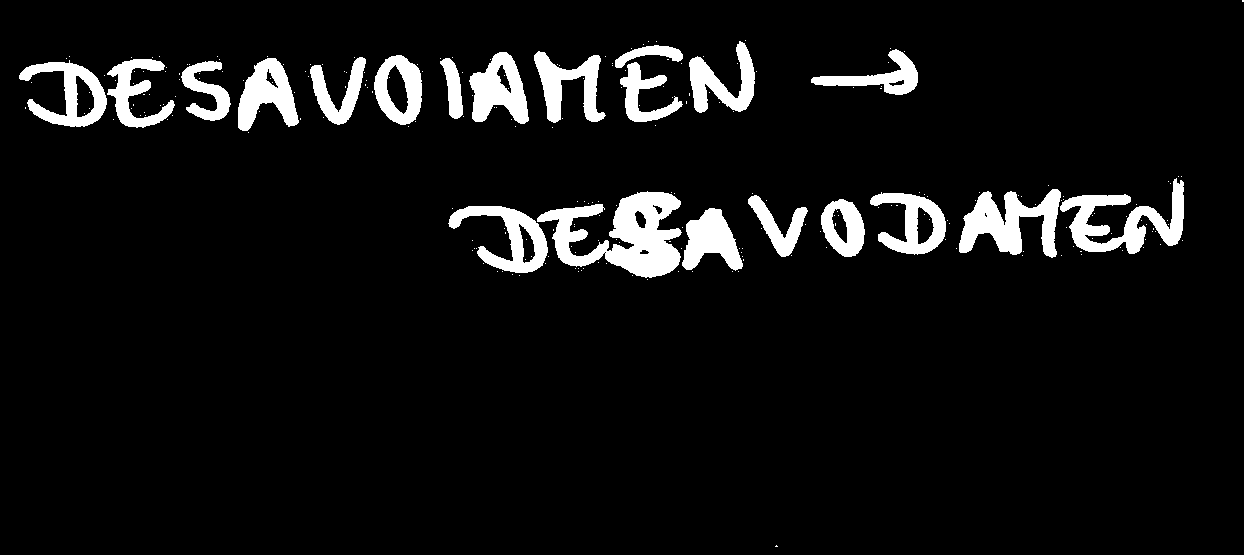 DESAVOIAMEN →
DESAVODAMEN